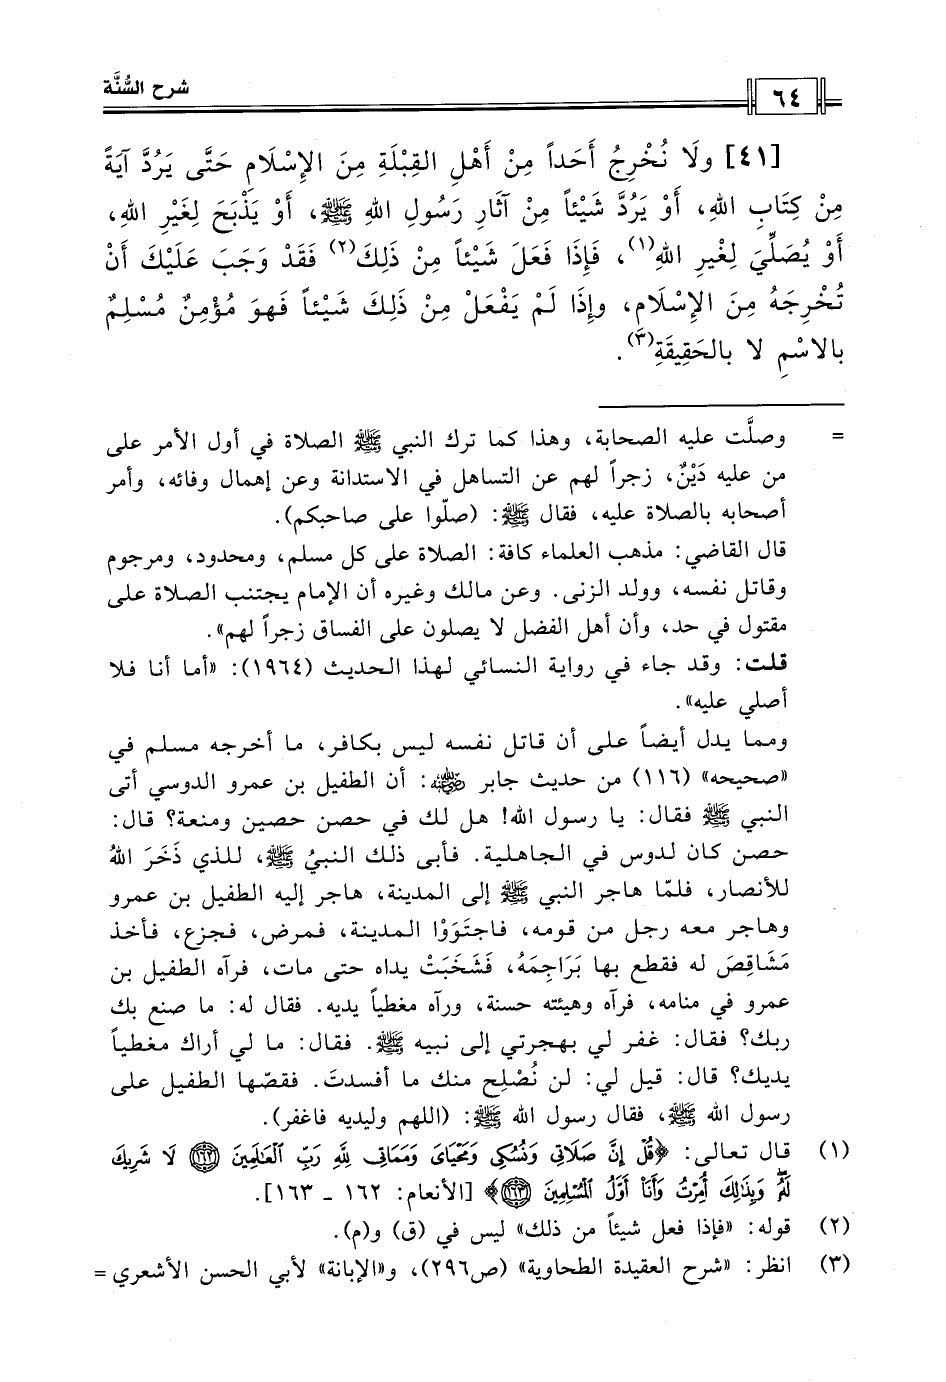 شرح السُّنَّة
٦٤
[٤١] ولَا نُخْرِجُ أَحَداً مِنْ أَهْلِ القِبْلَةِ مِنَ الإِسْلَامِ حَتَّى يَرُدَّ آيَةً
مِنْ كِتَابِ اللهِ، أَوْ يَرُدَّ شَيْئاً مِنْ آثَارِ رَسُولِ اللهِ ﷺ، أَوْ يَذْبَحَ لِغَيْرِ اللهِ،
أَوْ يُصَلِّيَ لِغَيرِ اللهِ(١)، فَإِذَا فَعَلَ شَيْئاً مِنْ ذَلِكَ(٢) فَقَدْ وَجَبَ عَلَيْكَ أَنْ
تُخْرِجَهُ مِنَ الإِسْلَامِ، وإِذَا لَمْ يَفْعَلْ مِنْ ذَلِكَ شَيْئاً فَهوَ مُؤْمِنٌ مُسْلِمٌ
بالاسْمِ لا بالحَقِيقَةِ(٣).
= وصلَّت عليه الصحابة، وهذا كما ترك النبي ﷺ الصلاة في أول الأمر على
من عليه دَيْنٌ، زجراً لهم عن التساهل في الاستدانة وعن إهمال وفائه، وأمر
أصحابه بالصلاة عليه، فقال ﷺ: (صلّوا على صاحبكم).
قال القاضي: مذهب العلماء كافة: الصلاة على كل مسلم، ومحدود، ومرجوم
وقاتل نفسه، وولد الزنى. وعن مالك وغيره أن الإمام يجتنب الصلاة على
مقتول في حد، وأن أهل الفضل لا يصلون على الفساق زجراً لهم».
قلت: وقد جاء في رواية النسائي لهذا الحديث (١٩٦٤): «أما أنا فلا
أصلي عليه».
ومما يدل أيضاً على أن قاتل نفسه ليس بكافر، ما أخرجه مسلم في
«صحيحه» (١١٦) من حديث جابر رضي الله عنه: أن الطفيل بن عمرو الدوسي أتى
النبي ﷺ فقال: يا رسول الله! هل لك في حصن حصين ومنعة؟ قال:
حصن كان لدوس في الجاهلية. فأبى ذلك النبيُ ﷺ، للذي ذَخَرَ اللهُ
للأنصار، فلمّا هاجر النبي ﷺ إلى المدينة، هاجر إليه الطفيل بن عمرو
وهاجر معه رجل من قومه، فاجتَوَوْا المدينة، فمرض، فجزع، فأخذ
مَشَاقِصَ له فقطع بها بَرَاجِمَهُ، فَشَخَبَتْ يداه حتى مات، فرآه الطفيل بن
عمرو في منامه، فرآه وهيئته حسنة، ورآه مغطياً يديه. فقال له: ما صنع بك
ربك؟ فقال: غفر لي بهجرتي إلى نبيه ﷺ. فقال: ما لي أراك مغطياً
يديك؟ قال: قيل لي: لن نُصْلِح منك ما أفسدتَ. فقصّها الطفيل على
رسول الله ﷺ، فقال رسول الله ﷺ: (اللهم وليديه فاغفر).
(١) قال تعالى: ﴿قُلْ إِنَّ صَلَاتِي وَنُسُكِي وَمَحْيَايَ وَمَمَاتِي لِلَّهِ رَبِّ الْعَالَمِينَ ۝١٦٢ لَا شَرِيكَ
لَهُۥ وَبِذَٰلِكَ أُمِرْتُ وَأَنَا۠ أَوَّلُ الْمُسْلِمِينَ ۝١٦٣﴾ [الأنعام: ١٦٢ ـ ١٦٣].
(٢) قوله: «فإذا فعل شيئاً من ذلك» ليس في (ق) و(م).
(٣) انظر: «شرح العقيدة الطحاوية» (ص٢٩٦)، و«الإبانة» لأبي الحسن الأشعري =